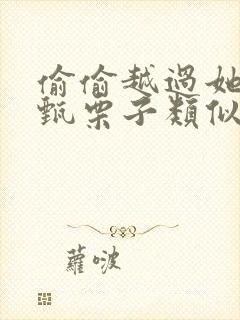 偷偷越過她
甄栗子類似
蘿啵